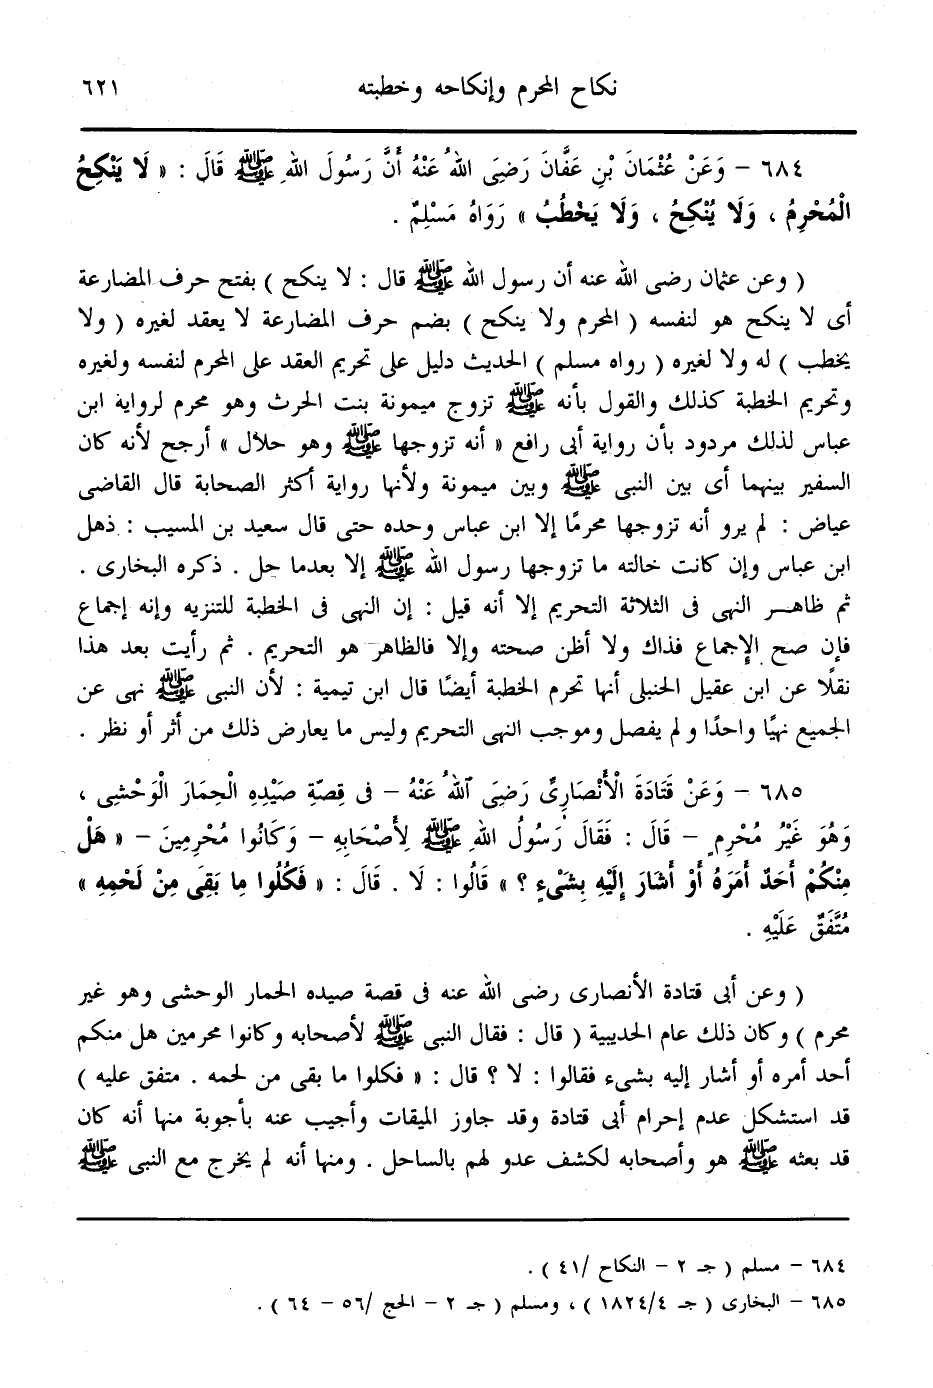 نكاح المحرم وإنكاحه وخطبته ٦٢١
٦٨٤ – وَعَنْ عُثْمَانَ بْنِ عَفَّانَ رَضِيَ اللهُ عَنْهُ أَنَّ رَسُولَ اللهِ ﷺ قَالَ : « لَا يَنْكِحُ
الْمُحْرِمُ ، وَلَا يُنْكِحُ ، وَلَا يَخْطُبُ » رَوَاهُ مَسْلِمٌ .
( وعن عثمان رضى الله عنه أن رسول الله ﷺ قال : لا ينكح ) بفتح حرف المضارعة
أى لا ينكح هو لنفسه ( المحرم ولا ينكح ) بضم حرف المضارعة لا يعقد لغيره ( ولا
يخطب ) له ولا لغيره ( رواه مسلم ) الحديث دليل على تحريم العقد على المحرم لنفسه ولغيره
وتحريم الخطبة كذلك والقول بأنه ﷺ تزوج ميمونة بنت الحرث وهو محرم لرواية ابن
عباس لذلك مردود بأن رواية أبى رافع « أنه تزوجها ﷺ وهو حلال » أرجح لأنه كان
السفير بينهما أى بين النبى ﷺ وبين ميمونة ولأنها رواية أكثر الصحابة قال القاضى
عياض : لم يرو أنه تزوجها محرمًا إلا ابن عباس وحده حتى قال سعيد بن المسيب : ذهل
ابن عباس وإن كانت خالته ما تزوجها رسول الله ﷺ إلا بعدما حل . ذكره البخارى .
ثم ظاهر النهى فى الثلاثة التحريم إلا أنه قيل : إن النهى فى الخطبة للتنزيه وإنه إجماع
فإن صح الإجماع فذاك ولا أظن صحته وإلا فالظاهر هو التحريم . ثم رأيت بعد هذا
نقلًا عن ابن عقيل الحنبلى أنها تحرم الخطبة أيضًا قال ابن تيمية : لأن النبى ﷺ نهى عن
الجميع نهيًا واحدًا ولم يفصل وموجب النهى التحريم وليس ما يعارض ذلك من أثر أو نظر .
٦٨٥ – وَعَنْ قَتَادَةَ الْأَنْصَارِىِّ رَضِىَ ٱللهُ عَنْهُ – فى قِصّةِ صَيْدِهِ الْحِمَارَ الْوَحْشِى ،
وَهُوَ غَيْرُ مُحْرِمٍ – قَالَ : فَقَالَ رَسُولُ اللهِ ﷺ لِأَصْحَابِهِ – وَكَانُوا مُحْرِمِينَ – « هَلْ
مِنْكُمْ أَحَدٌ أَمَرَهُ أَوْ أَشَارَ إِلَيْهِ بِشَىْءٍ ؟ » قَالُوا : لَا . قَالَ : « فَكُلُوا مِا بَقِىَ مِنْ لَحْمِهِ »
مُتَّفَقٌ عَلَيْهِ .
( وعن أبى قتادة الأنصارى رضى الله عنه فى قصة صيده الحمار الوحشى وهو غير
محرم ) وكان ذلك عام الحديبية ( قال : فقال النبى ﷺ لأصحابه وكانوا محرمين هل منكم
أحد أمره أو أشار إليه بشىء فقالوا : لا ؟ قال : « فكلوا ما بقى من لحمه . متفق عليه )
قد استشكل عدم إحرام أبى قتادة وقد جاوز الميقات وأجيب عنه بأجوبة منها أنه كان
قد بعثه ﷺ هو وأصحابه لكشف عدو لهم بالساحل . ومنها أنه لم يخرج مع النبى ﷺ
٦٨٤ – مسلم ( جـ ٢ – النكاح /٤١ ) .
٦٨٥ – البخارى ( جـ ١٨٢٤/٤ ) ، ومسلم ( جـ ٢ – الحج /٥٦ – ٦٤ ) .